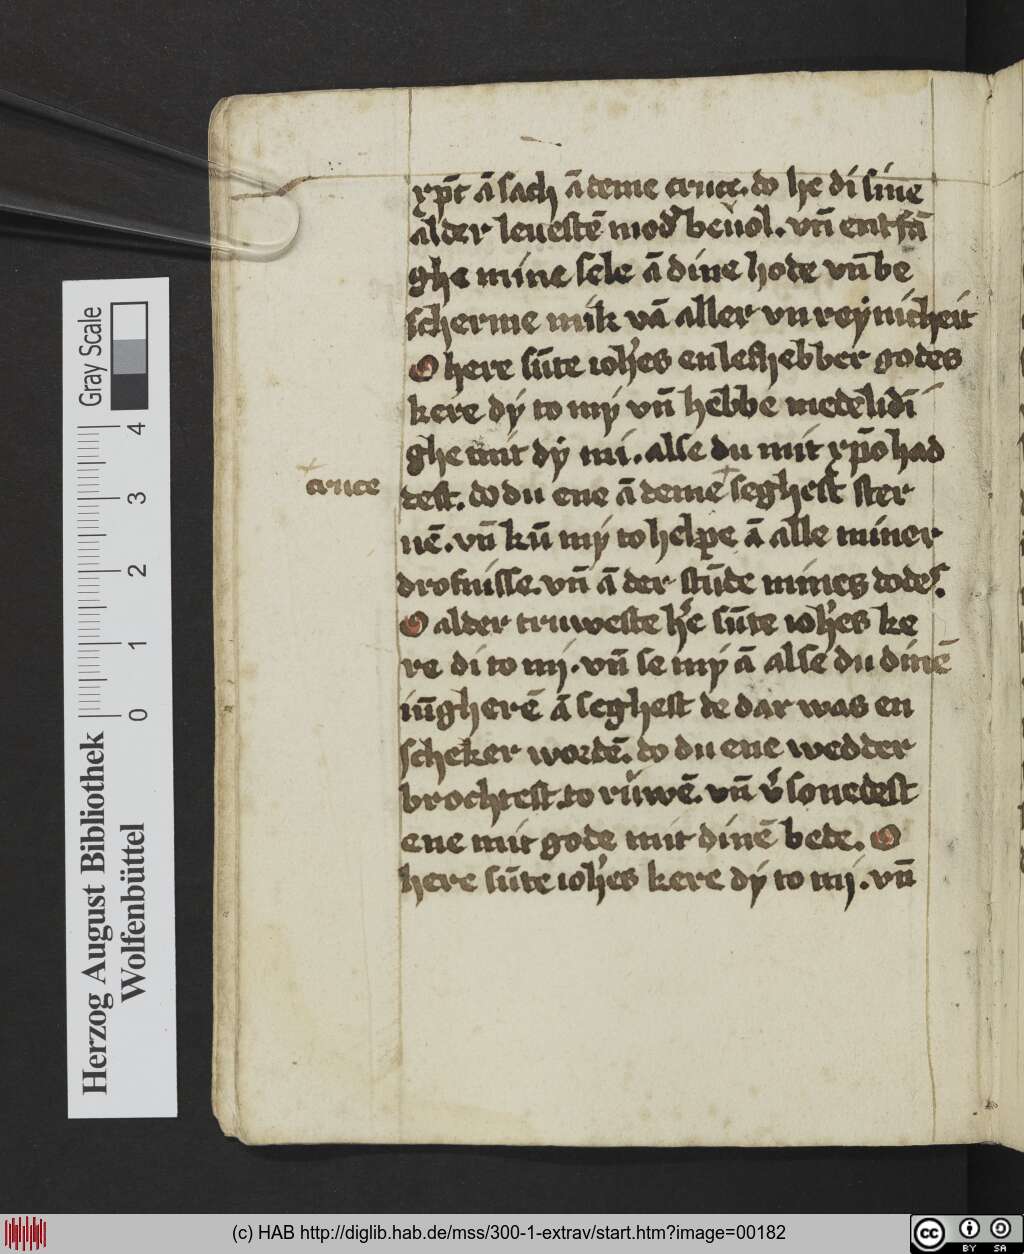 xp̄t ā sach ā deme cruce. do he di sine
alder leuestē mod᷑ beuol. vn̄ entfā
ghe mine sele ā dine hode vn̄ be
scherme mik vā aller vn reẏnicheit
O here sūte ioh̄es en lefhebber godes
kere dẏ to mẏ vn̄ hebbe medelidī
ghe mit dẏ mi. alse du mit xp̄o had
dest. do du ene ā deme + seghest ster
uē. vn̄ kū mẏ to helpe ā alle miner
drofnisse. vn̄ ā der stūde mines dodes.
O alder truweste h̄e sūte ioh̄es ke
re di to mi. vn̄ se mẏ ā alse du dinē
iūgherē ā seghest de dar was en
scheker wordē. do du ene wedder
brochtest to rüwē. vn̄ v᷑sonedest
ene mit gode mit dinē bede. O
here sūte ioh̄es kere dẏ to mi. vn̄
+
cruce
Gray Scale
4
3
2
1
0
Herzog August Bibliothek
Wolfenbüttel
(c) HAB http://diglib.hab.de/mss/300-1-extrav/start.htm?image=00182
cc
BY SA